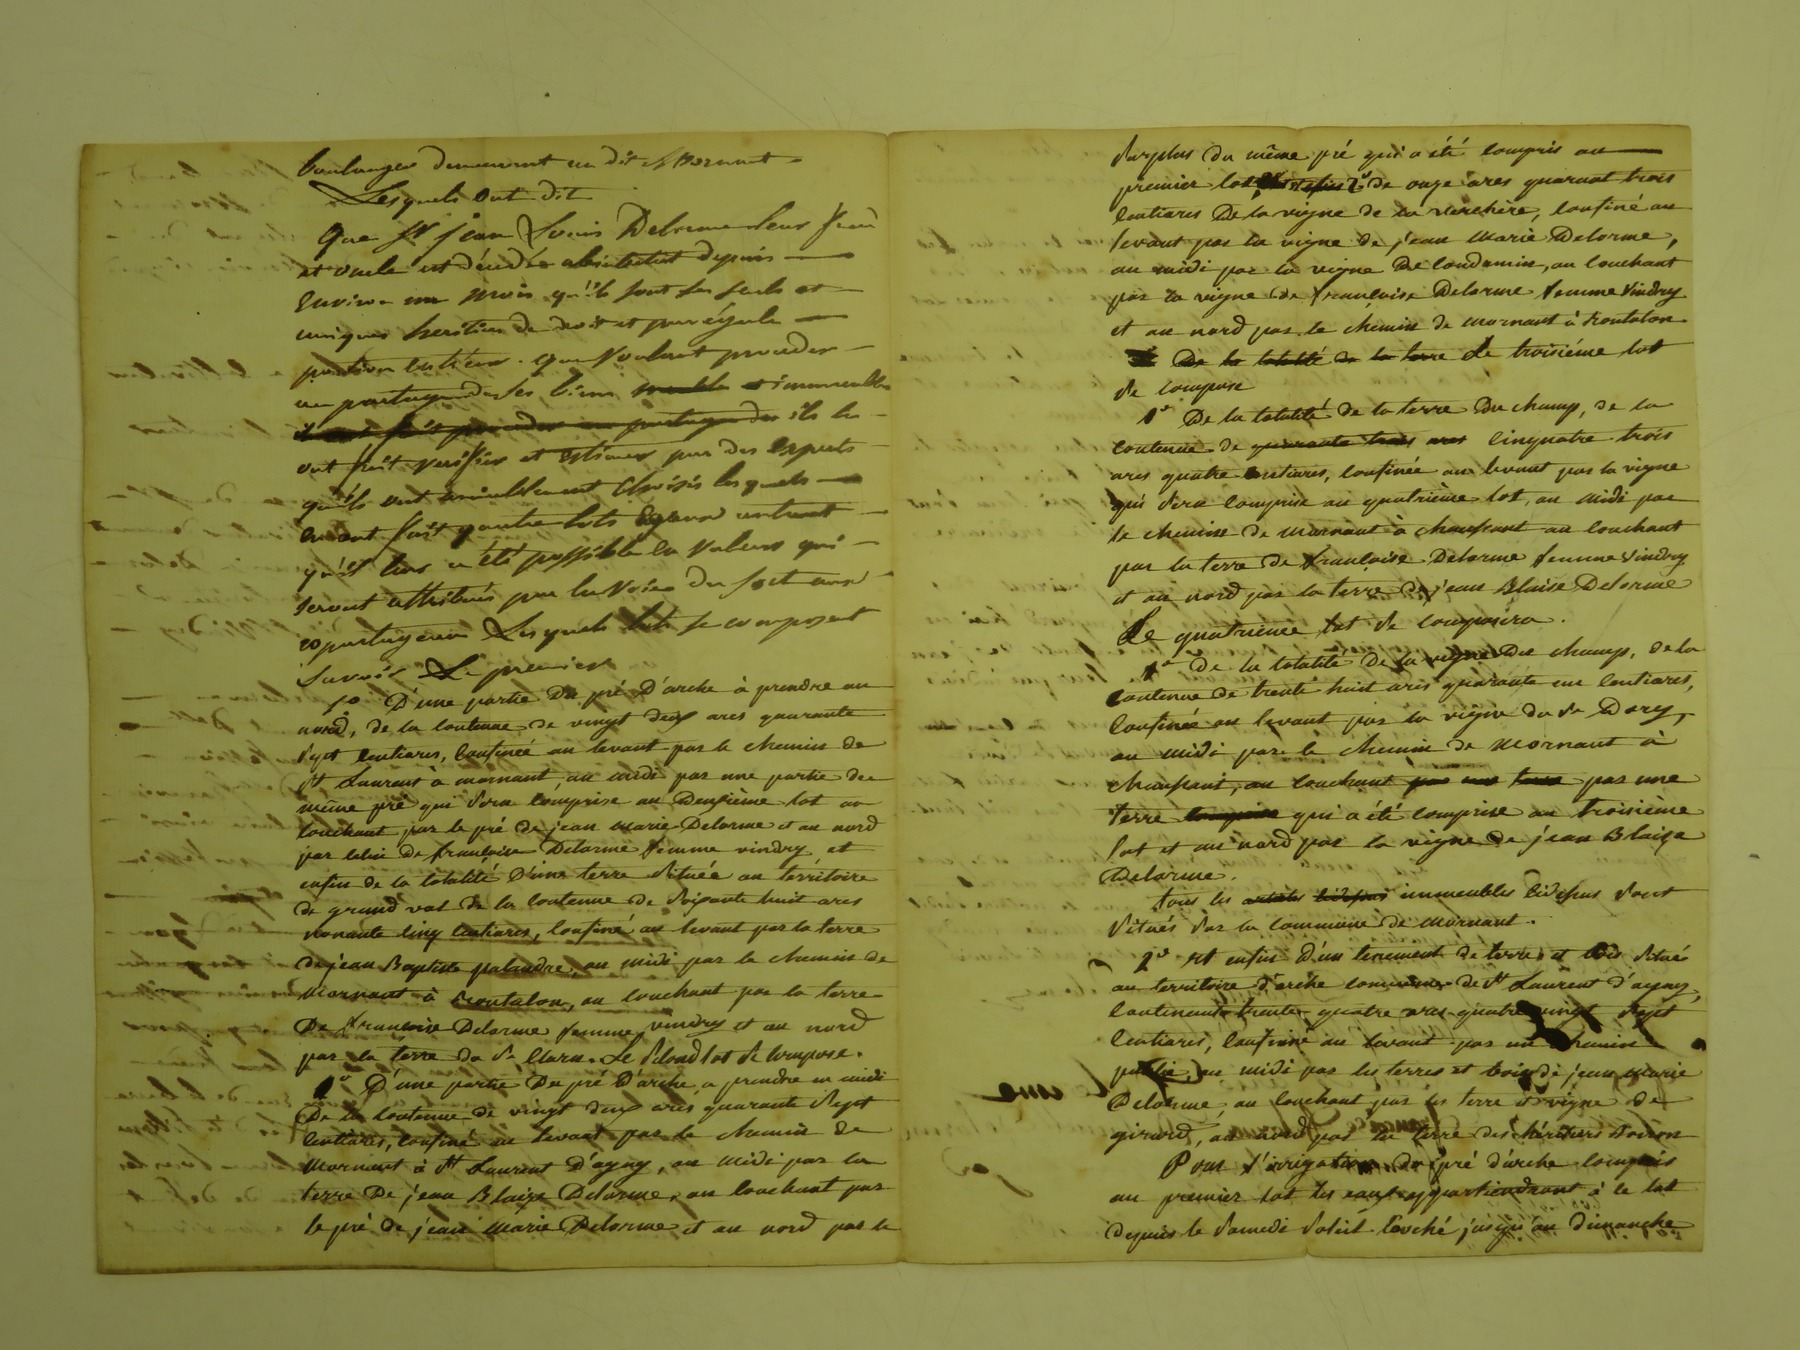 boulanger demeurant au dit Mornant
Lesquels ont dit
Que Sr jean Louis Delorme leur frere
et oncle est décédé abintestat depuis
Environ un mois qu'ils sont ses seuls et
uniques heritiers de droit et par égale
portion entreux. que voulant proceder
au partage de ses biens meuble et immeubles
il ont fait proceder au partage des ils les
ont fait verifier et estimer par des experts
qu'ils ont amiablement choisis lesquels
en ont fait quatre lots Egaux autant
qu'il leur a été possible en valeur qui
seront attribués par la voie du sort aux
copartageans Lesquels lots se composent
Savoir Le premier
1o D'une partie Du pré D'arche à prendre au
nord, de la Contenue de vingt deux ares quarante
sept Centiares, Confinée au levant par le chemin de
St Laurent à mornant, au midi par une partie du
même pré qui sera comprise au Deuxième lot au
Couchant par le pré de jean marie Delorme et au nord
par celui de francoise Delorme femme vindry et
enfin de la totalité D'une terre située au territoire
de grand val de la Contenue de soixante huit ares
nonante cinq Centiares, Confiné au levant par la terre
de jean Baptiste palandre, au midi par le chemin de
Mornant à Montalon, au Couchant par la terre
De francoise Delorme femme vindry et au nord
par la terre du Sr Clarn. Le second lot se Compose.
1o D'une partie Du pré D'arche, a prendre au midi
De la Contenue de vingt deux ares quarante sept
Centiares, Confiné au levant par le chemin de
Mornant à St Laurent D'agny, au midi par la
terre De jean Blaize Delorme, au Couchant par
le pré de jean Marie Delorme et au nord par le
Surplus du même pré qui a été Compris au
premier lot 2o de onze ares quarant trois
Centiares De la vigne de la verchère, Confiné au
levant par la vigne de jean Marie Delorme,
au midi par la vigne De Condamin, au Couchant
par la vigne de françoise Delorme femme Vindry
et au nord par le chemin de mornant à Montalon
De la totalité de la terre Le troisième lot
se Compose
1o De la totalité de la terre Du champ, de la
Contenue de quarante trois ares Cinquatre trois
ares quatre Centiares, Confinée au levant par la vigne
qui sera Comprise au quatrième lot, au midi par
le chemin de Mornant à chaussant au Couchant
par la terre de françoise Delorme femme Vindry
et au nord par la terre de jean Blaise Delorme
Le quatrieme lot se Composera.
1o De la totalité De la vigne Du champ, de la
Contenue de trente huit ares quarante un Centiares,
Confinée au levant par la vigne du Sr Dory,
au midi par le chemin de Mornant à
chaussant, au Couchant par une terre par une
terre Comprise qui a été Comprise au troisième
lot et au nord par la vigne de jean Blaize
Delorme.
Tous les immeubles Cidessus sont
situés sur la Commune de Mornant.
2o Et enfin D'un tenement de terre et bois situé
au territoire d'arche Commune de St Laurent d'agny,
Contenant trente quatre ares quatre vingt sept
Centiares, Confiné au levant par un chemin
public, au midi par les terres et bois de jean Marie
Delorme, au Couchant par les terre et vigne de
girard, au nord par la terre des héritiers
Pour l'irrigation du pré d'arche Compris
au premier lot les eaux appartiendront à ce lot
depuis le Samedi Soleil Couché jusqu'au Dimanche